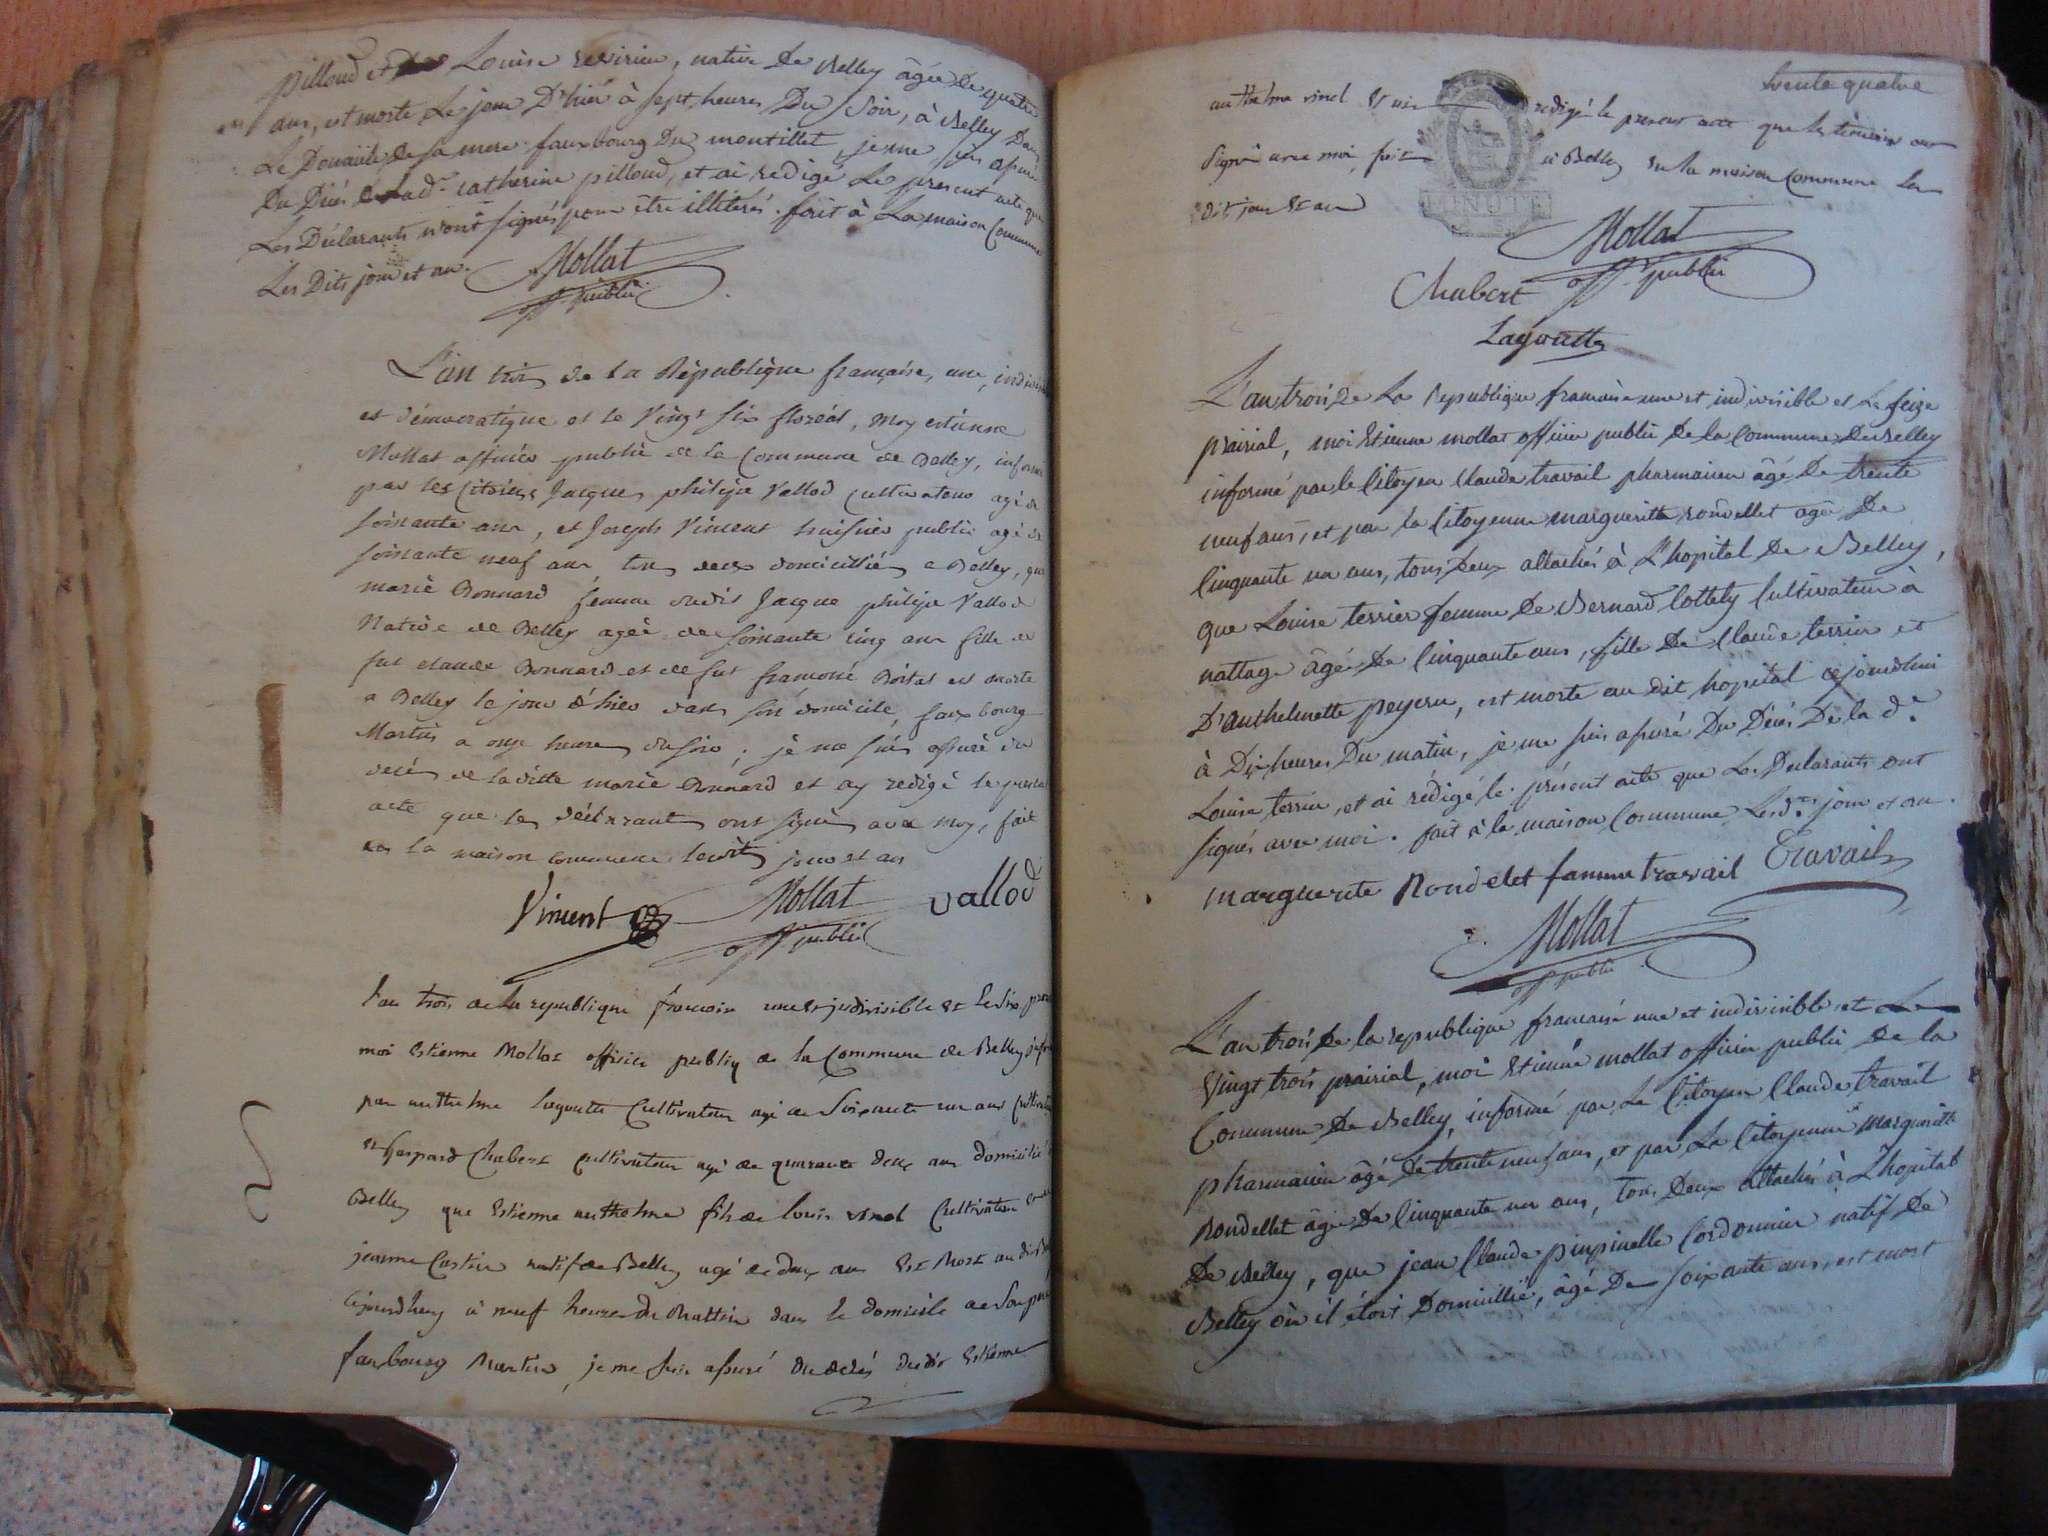 pilloud et Louise revirieu, native De Belley âgée De quatre
ans, est morte Le jour D'hier à sept heures Du Soir, à Belley Dans
Le Domicile De sa mere fauxbourg Du montillet, je me suis assuré
Du Décés De Lad.e catherine pilloud, et ai redigé Le present acte que
Les Déclarants n'ont signés pour être illitérés. fait à La maison Commune
Les Dits jour et an.
Mollat
off. public
L'an trois de la République française, une, indivisible
et démocratique et le Vingt six floréal, moy estienne
Mollat officier public de la Commune de Belley, informé
par les Citoiens Jacques philipe Vallod cultivateur agé de
soixante ans, et Joseph Vincent huissier public agé de
soixante neuf ans tous deux domiciliés a Belley, que
marie Bonnard femme dudit Jacque philipe Vallod
Native de Belley agée de soixante cinq ans fille de
fut claude Bonnard et de fut francoise est morte
a Belley le jour d'hier dans son domicile, faux bourg
Martin a onze heures du soir, je me suis assuré du
decés de laditte marie Bonnard et ay redigé le present
acte que les déclarants ont signés avec moy, fait
en la maison commune lesdits jour et an
Vincent Mollat vallod
off. public
l'an trois de la republique francoise une et indivisible et le six
moi estienne Mollat officier public de la Commune de Belley informé
par anthelme Lagoutte Cultivateur agé de soixante un ans
et Gaspard Chabert cultivateur agé de quarante deux ans domicilié
Belley que estienne anthelme fils de louis vinel Cultivateur
jeanne Castin natif de Belley agé de deux ans est Mort au dit
ajourdhuy à neuf heures du Mattin dans le domicile de son pere
fauxbourg Martin, je me suis assuré du decés dudit estienne
trente quatre
anthelme vinel et ai redigé le present acte que les témoins ont
signé avec moi, fait à Belley en la maison Commune les
dits jour et an
Mollat
Chabert off. public
Lagoutte
L'an trois De La Republique francaise une et indivisible et Le seize
prairial, moi Etienne mollat officier public De la Commune De Belley
informé par le Citoyen Claude travail pharmacien âgé De trente
neuf ans, et par la Citoyenne margueritte rondellet agée De
Cinquante un ans, tous Deux attachés à L'hopital De Belley,
que Louise terrier femme De Bernard Cottety Cultivateur à
nattage âgée De Cinquante ans, fille De Claude terrier et
D'anthelmette peyeru, est morte au dit hopital cejourdhui
à Dix heures Du matin, je me suis assuré Du Décés De la d.e
Louise terrier, et ai rédigé le présent acte que Les Declarants ont
signés avec moi. fait à la maison Commune Lesd.ts jour et an.
marguerite Rondelet famme travail Travail
Mollat
off public
L'an trois De la republique francaise une et indivisible et Le
Vingt trois prairial, moi Etienne mollat officier public De la
Commune De Belley, informé par Le Citoyen Claude travail
pharmacien âgé De trente neuf ans, et par La Citoyenne margueritte
Rondellet âgée De Cinquante un ans, tous Deux attachés à L'hopital
De Belley, que jean Claude pinpinelle Cordonnier natif De
Belley où il étoit Domicillié, âgé De soixante ans, est mort